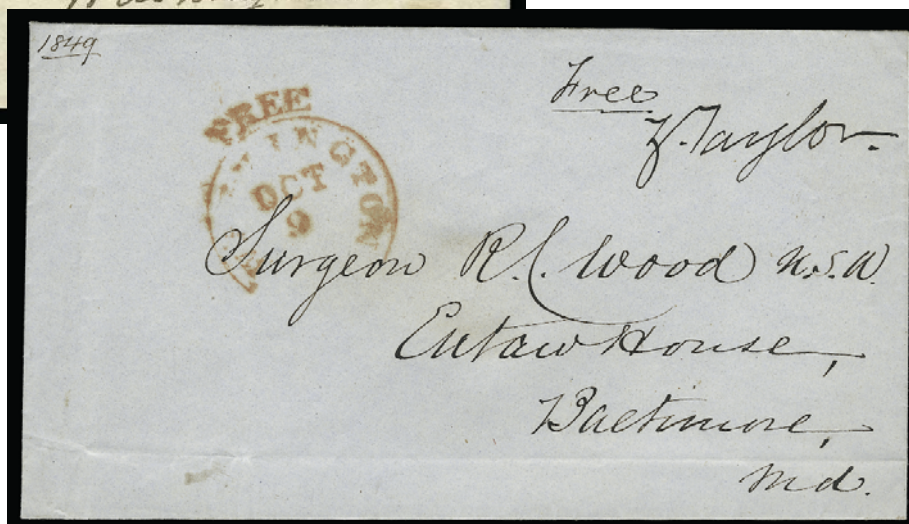 1849
FREE
Free
Z. Taylor.
INGTON
OCT
9
Surgeon R. C. Wood U.S.A.
Eutaw House,
Baltimore,
Md.